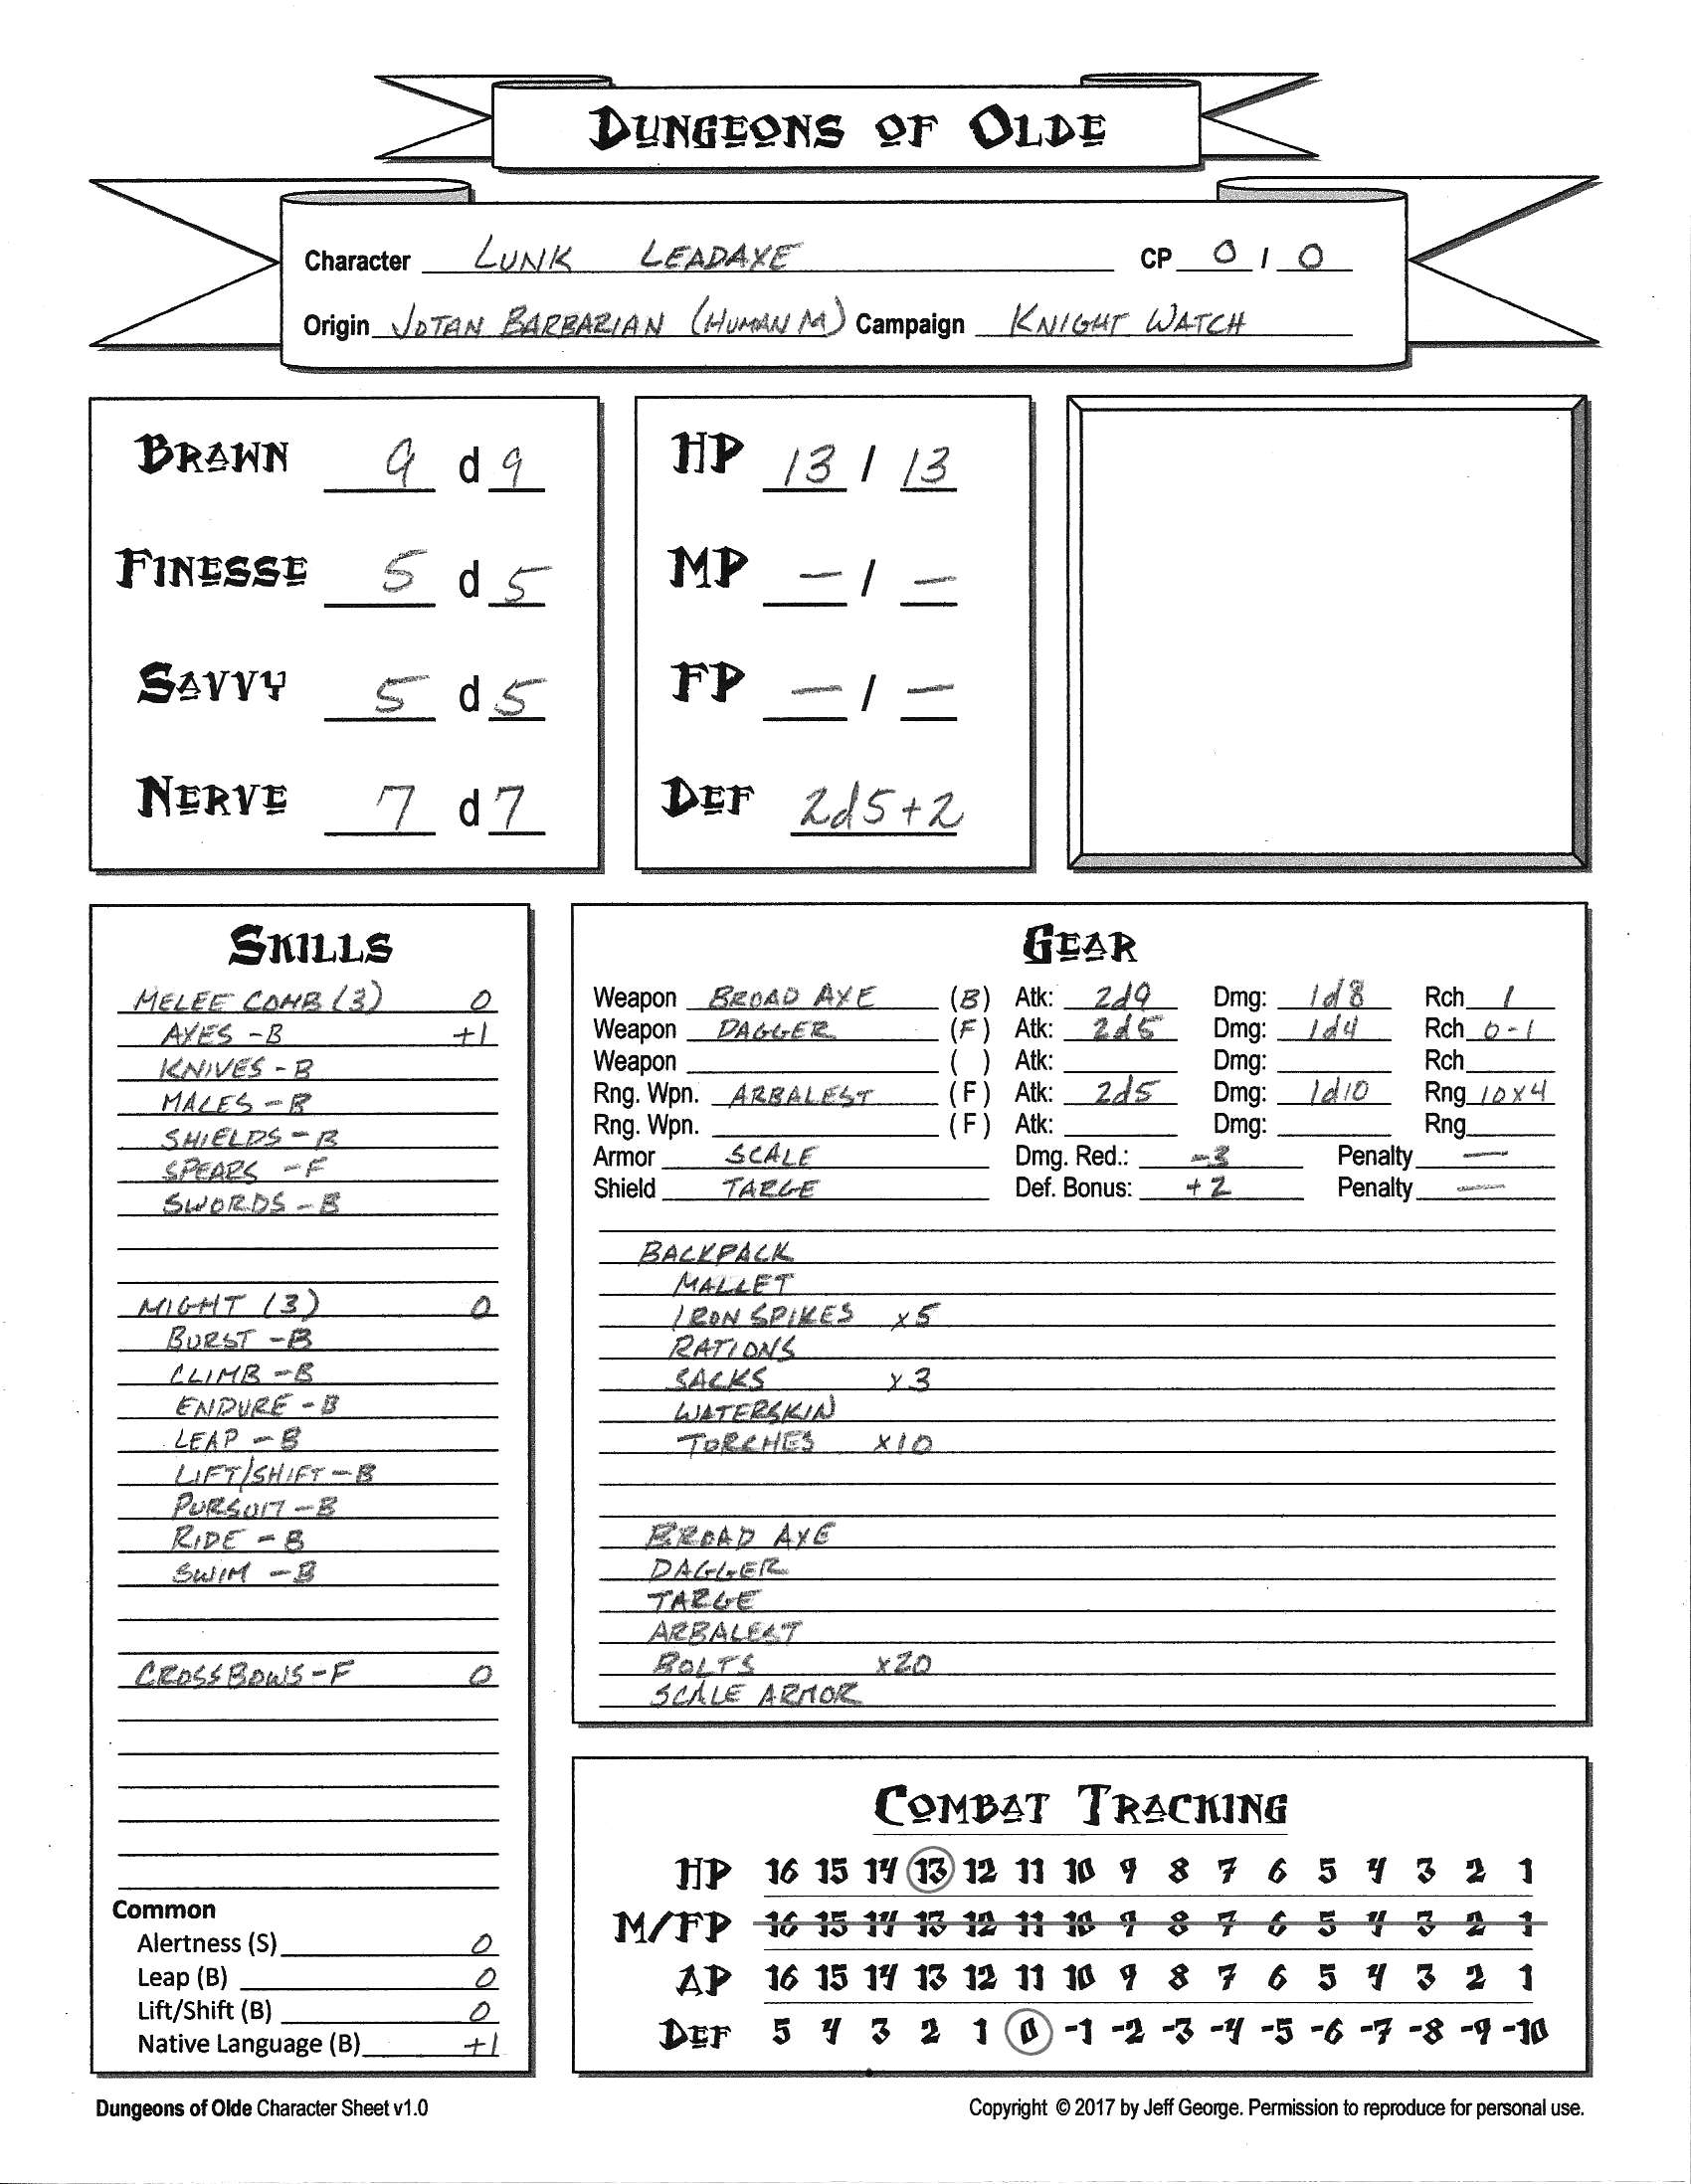 DUNGEONS OF OLDE
Character LUNK LEADAXE CP 0 / 0
Origin JOTAN BARBARIAN (HUMAN M) Campaign KNIGHT WATCH
BRAWN 9 d 9
FINESSE 5 d 5
SAVVY 5 d 5
NERVE 7 d 7
HP 13 / 13
MP — / —
FP — / —
DEF 2d5+2
SKILLS
MELEE COMB (3) 0
AXES -B +1
KNIVES - B
MACES - B
SHIELDS - B
SPEARS - F
SWORDS - B
MIGHT (3) 0
BURST -B
CLIMB -B
ENDURE - B
LEAP - B
LIFT/SHIFT - B
PURSUIT - B
RIDE - B
SWIM - B
CROSSBOWS - F 0
Common
Alertness (S) 0
Leap (B) 0
Lift/Shift (B) 0
Native Language (B) +1
GEAR
Weapon BROAD AXE (B) Atk: 2d9 Dmg: 1d8 Rch 1
Weapon DAGGER (F) Atk: 2d5 Dmg: 1d4 Rch 0-1
Weapon ( ) Atk: Dmg: Rch
Rng. Wpn. ARBALEST (F) Atk: 2d5 Dmg: 1d10 Rng 10x4
Rng. Wpn. (F) Atk: Dmg: Rng
Armor SCALE Dmg. Red.: -3 Penalty —
Shield TARGE Def. Bonus: +2 Penalty —
BACKPACK
MALLET
IRON SPIKES x5
RATIONS
SACKS x3
WATERSKIN
TORCHES x10
BROAD AXE
DAGGER
TARGE
ARBALEST
BOLTS x20
SCALE ARMOR
COMBAT TRACKING
HP 16 15 14 13 12 11 10 9 8 7 6 5 4 3 2 1
M/FP 16 15 14 13 12 11 10 9 8 7 6 5 4 3 2 1
AP 16 15 14 13 12 11 10 9 8 7 6 5 4 3 2 1
DEF 5 4 3 2 1 0 -1 -2 -3 -4 -5 -6 -7 -8 -9 -10
Dungeons of Olde Character Sheet v1.0
Copyright © 2017 by Jeff George. Permission to reproduce for personal use.